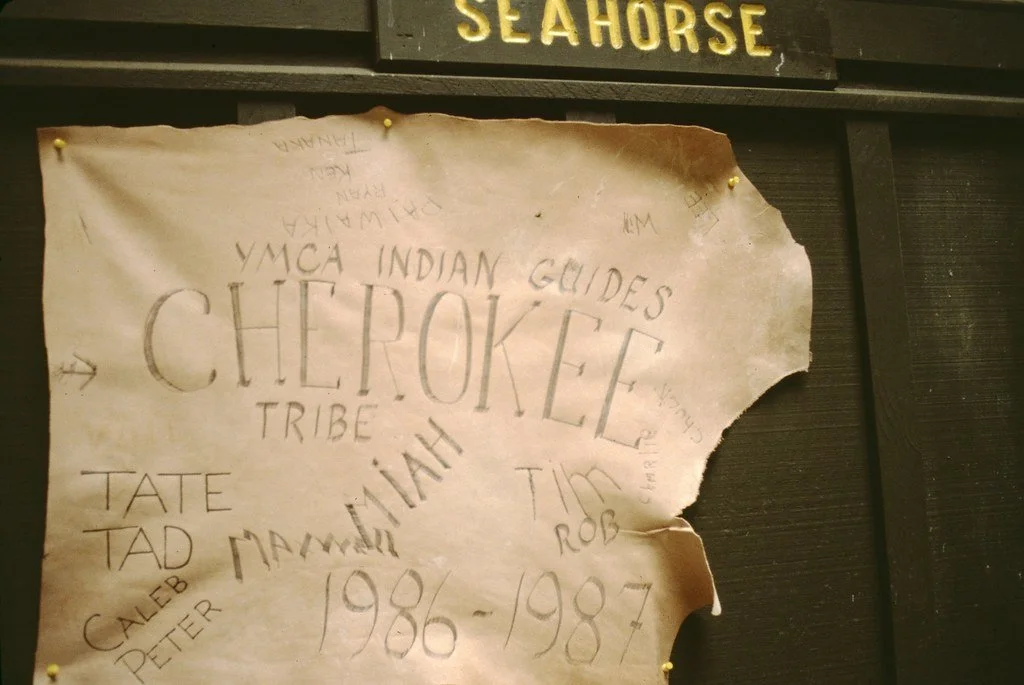 SEAHORSE
TANAKA
KEN
RYAN
Will
LEE
YMCA INDIAN GUIDES
CHEROKEE
TRIBE
Chuck
Charlie
MIAH
TATE
TAD
Tim
ROB
CALEB
PETER
1986-1987